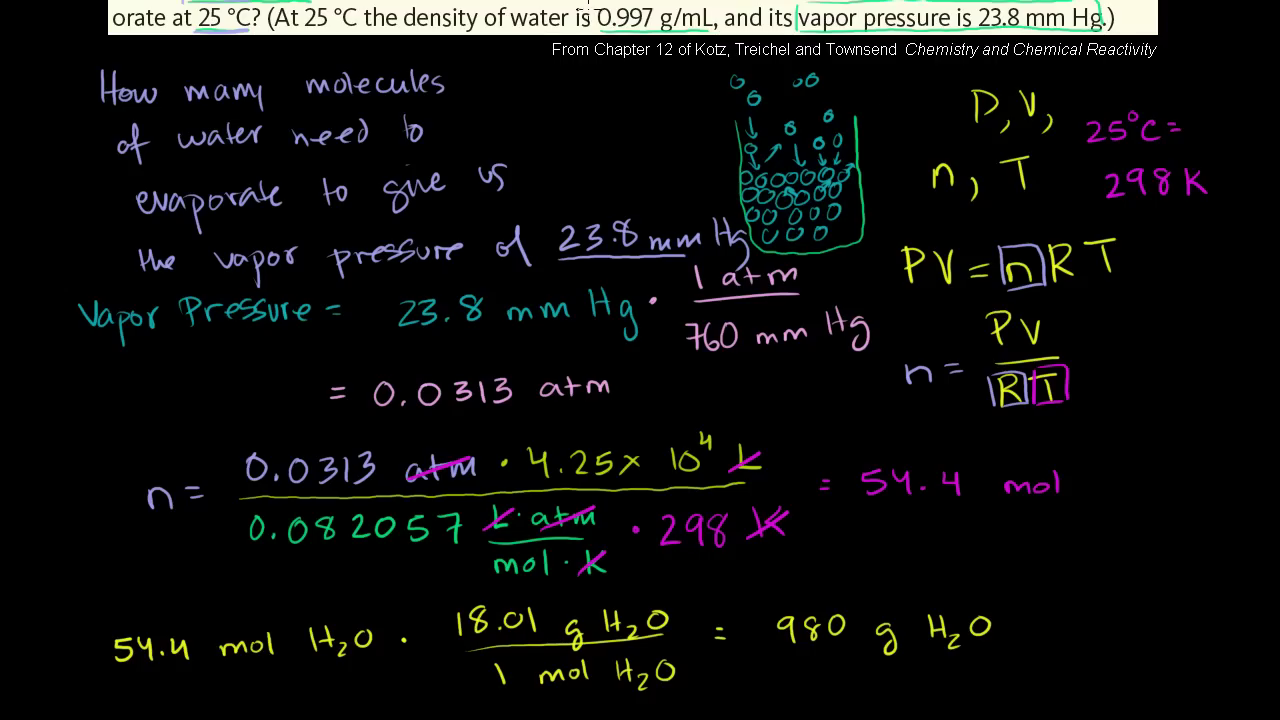 orate at 25 °C? (At 25 °C the density of water is 0.997 g/mL, and its vapor pressure is 23.8 mm Hg.)
From Chapter 12 of Kotz, Treichel and Townsend Chemistry and Chemical Reactivity
How many molecules
of water need to
evaporate to give us
the vapor pressure of 23.8 mm Hg
P, V,
n, T
25°C =
298 K
PV = nRT
n = PV / RT
Vapor Pressure = 23.8 mm Hg · 1 atm / 760 mm Hg
= 0.0313 atm
n = 0.0313 atm · 4.25 x 10⁴ L
0.082057 L·atm / mol·K · 298 K
= 54.4 mol
54.4 mol H₂O · 18.01 g H₂O / 1 mol H₂O = 980 g H₂O